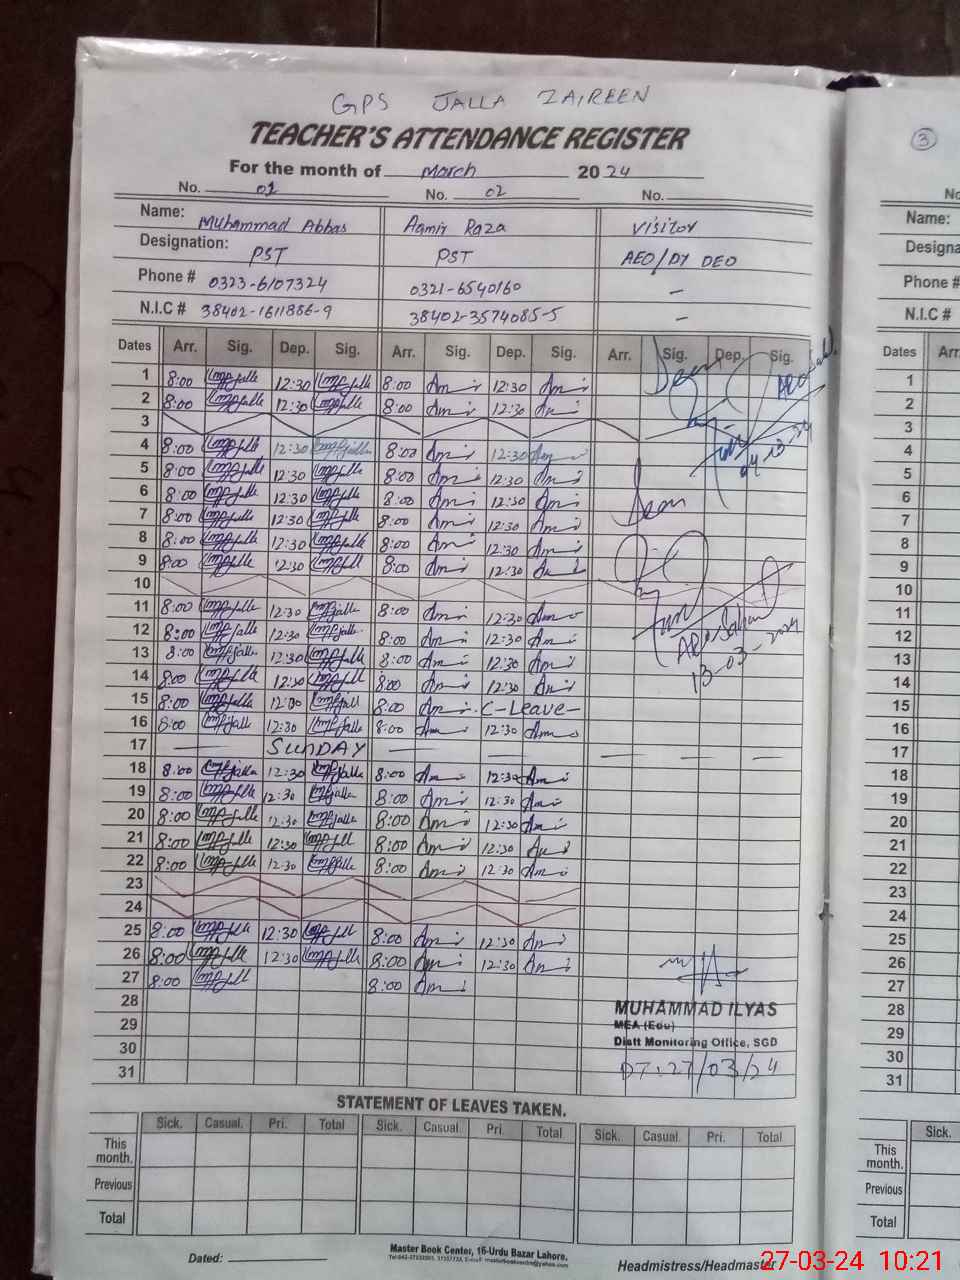 GPS JALLA ZAIREEN
TEACHER'S ATTENDANCE REGISTER
For the month of March 2024
No. 01 No. 02 No.
Name: Muhammad Abbas Aamir Raza Visitor
Designation: PST PST AEO/DY DEO
Phone # 0323-6107324 0321-6540160 -
N.I.C # 38402-1611866-9 38402-3574085-5 -
Dates Arr. Sig. Dep. Sig. Arr. Sig. Dep. Sig. Arr. Sig. Dep. Sig.
1 8:00 12:30 8:00 12:30
2 8:00 12:30 8:00 12:30
3
4 8:00 12:30 8:00 12:30
04-03-24
5 8:00 12:30 8:00 12:30
6 8:00 12:30 8:00 12:30
7 8:00 12:30 8:00 12:30
8 8:00 12:30 8:00 12:30
9 8:00 12:30 8:00 12:30
10
11 8:00 12:30 8:00 12:30
12 8:00 12:30 8:00 12:30
13 8:00 12:30 8:00 12:30
13-03-2024
14 8:00 12:30 8:00 12:30
15 8:00 12:30 8:00 C-Leave-
16 8:00 12:30 8:00 12:30
17 SUNDAY
18 8:00 12:30 8:00 12:30
19 8:00 12:30 8:00 12:30
20 8:00 12:30 8:00 12:30
21 8:00 12:30 8:00 12:30
22 8:00 12:30 8:00 12:30
23
24
25 8:00 12:30 8:00 12:30
26 8:00 12:30 8:00 12:30
27 8:00 8:00
28
29
30
31
MUHAMMAD ILYAS
MEA (Edu)
Distt Monitoring Office, SGD
DT:27/03/24
STATEMENT OF LEAVES TAKEN.
Sick. Casual. Pri. Total Sick. Casual Pri. Total Sick. Casual. Pri. Total
This month.
Previous
Total
Dated:
Master Book Center, 16-Urdu Bazar Lahore.
Headmistress/Headmaster
3
No
Name:
Designa
Phone #
N.I.C #
Dates Arr
1
2
3
4
5
6
7
8
9
10
11
12
13
14
15
16
17
18
19
20
21
22
23
24
25
26
27
28
29
30
31
Sick.
This month.
Previous
Total
27-03-24 10:21